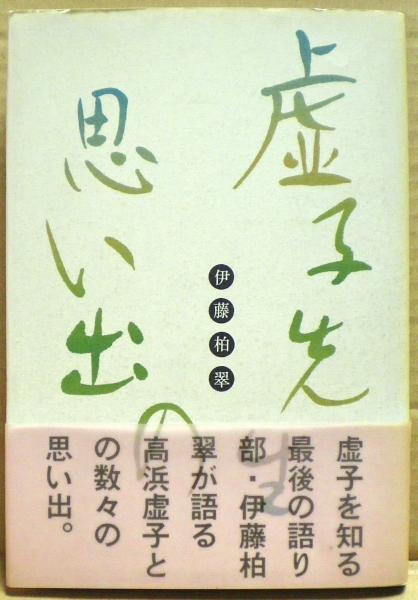 虚子先生の
思い出
伊藤柏翠
虚子を知る
最後の語り
部・伊藤柏
翠が語る
高浜虚子と
の数々の
思い出。